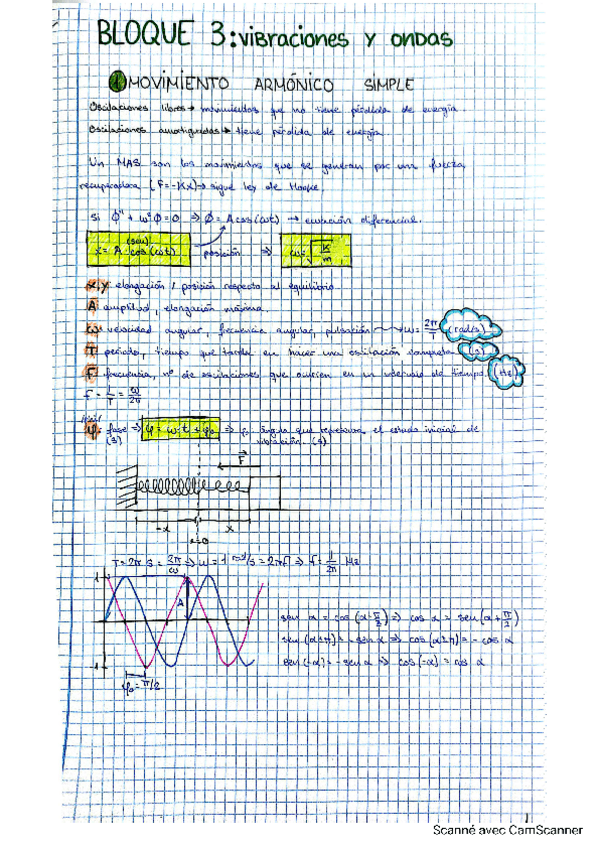 BLOQUE 3: vibraciones y ondas
1 MOVIMIENTO ARMÓNICO SIMPLE
Oscilaciones libres → movimientos que no tiene pérdida de energía.
Oscilaciones amortiguadas → tiene pérdida de energía.
Un MAS son los movimientos que se generan por una fuerza
recuperadora (F=-Kx) → sigue ley de Hooke.
Si ϕ'' + ω²ϕ=0 ⇒ ϕ= A cos(ωt) → ecuación diferencial.
(sen)
x= A cos(ωt) posición ⇒ ω=√K/m
x,y elongación / posición respecto al equilibrio
A amplitud, elongación máxima.
ω velocidad angular, frecuencia angular, pulsación → ω= 2π/T (rad/s)
T periodo, tiempo que tarda en hacer una oscilación completa (s)
F frecuencia, nº de oscilaciones que ocurren en un intervalo de tiempo. (Hz)
f = 1/T = ω/2π
φ: fase ⇒ φ= ω·t + φ₀ ⇒ φ₀ ángulo que representa el estado inicial de
(s) vibración. (s)
F
-x x
x=0
T= 2π s = 2π/ω ⇒ ω = 1 rad/s = 2πf ⇒ f= 1/2π Hz
1
A
-1
φ₀= π/2
sen α = cos (α-π/2) ⇒ cos α = sen(α+π/2)
sen (α±π)= -sen α ⇒ cos(α±π)= -cos α
sen(-α)= -sen α ⇒ cos(-α)= cos α
1
Scanné avec CamScanner